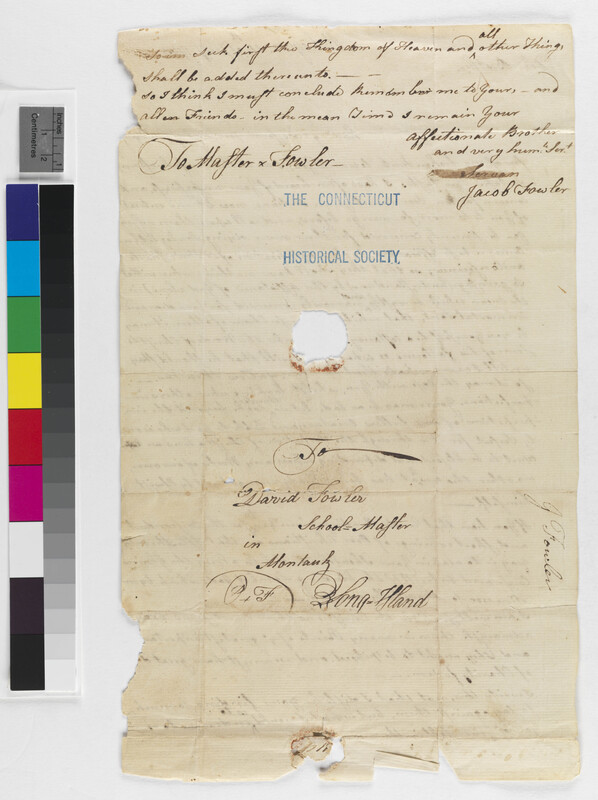 seek first the Kingdom of Heaven and all other Things
shall be added thereunto. —
so I think I must conclude Remember me to Yours, — and
all en Friends — in the mean Time I remain Your
affectionate Brother
and very humle Sert
Jacob Fowler
To Master x Fowler —
THE CONNECTICUT
HISTORICAL SOCIETY.
To
David Fowler
School-Master
in
Montauk
Long-Island
J Fowler
Inches
Centimetres
1
2